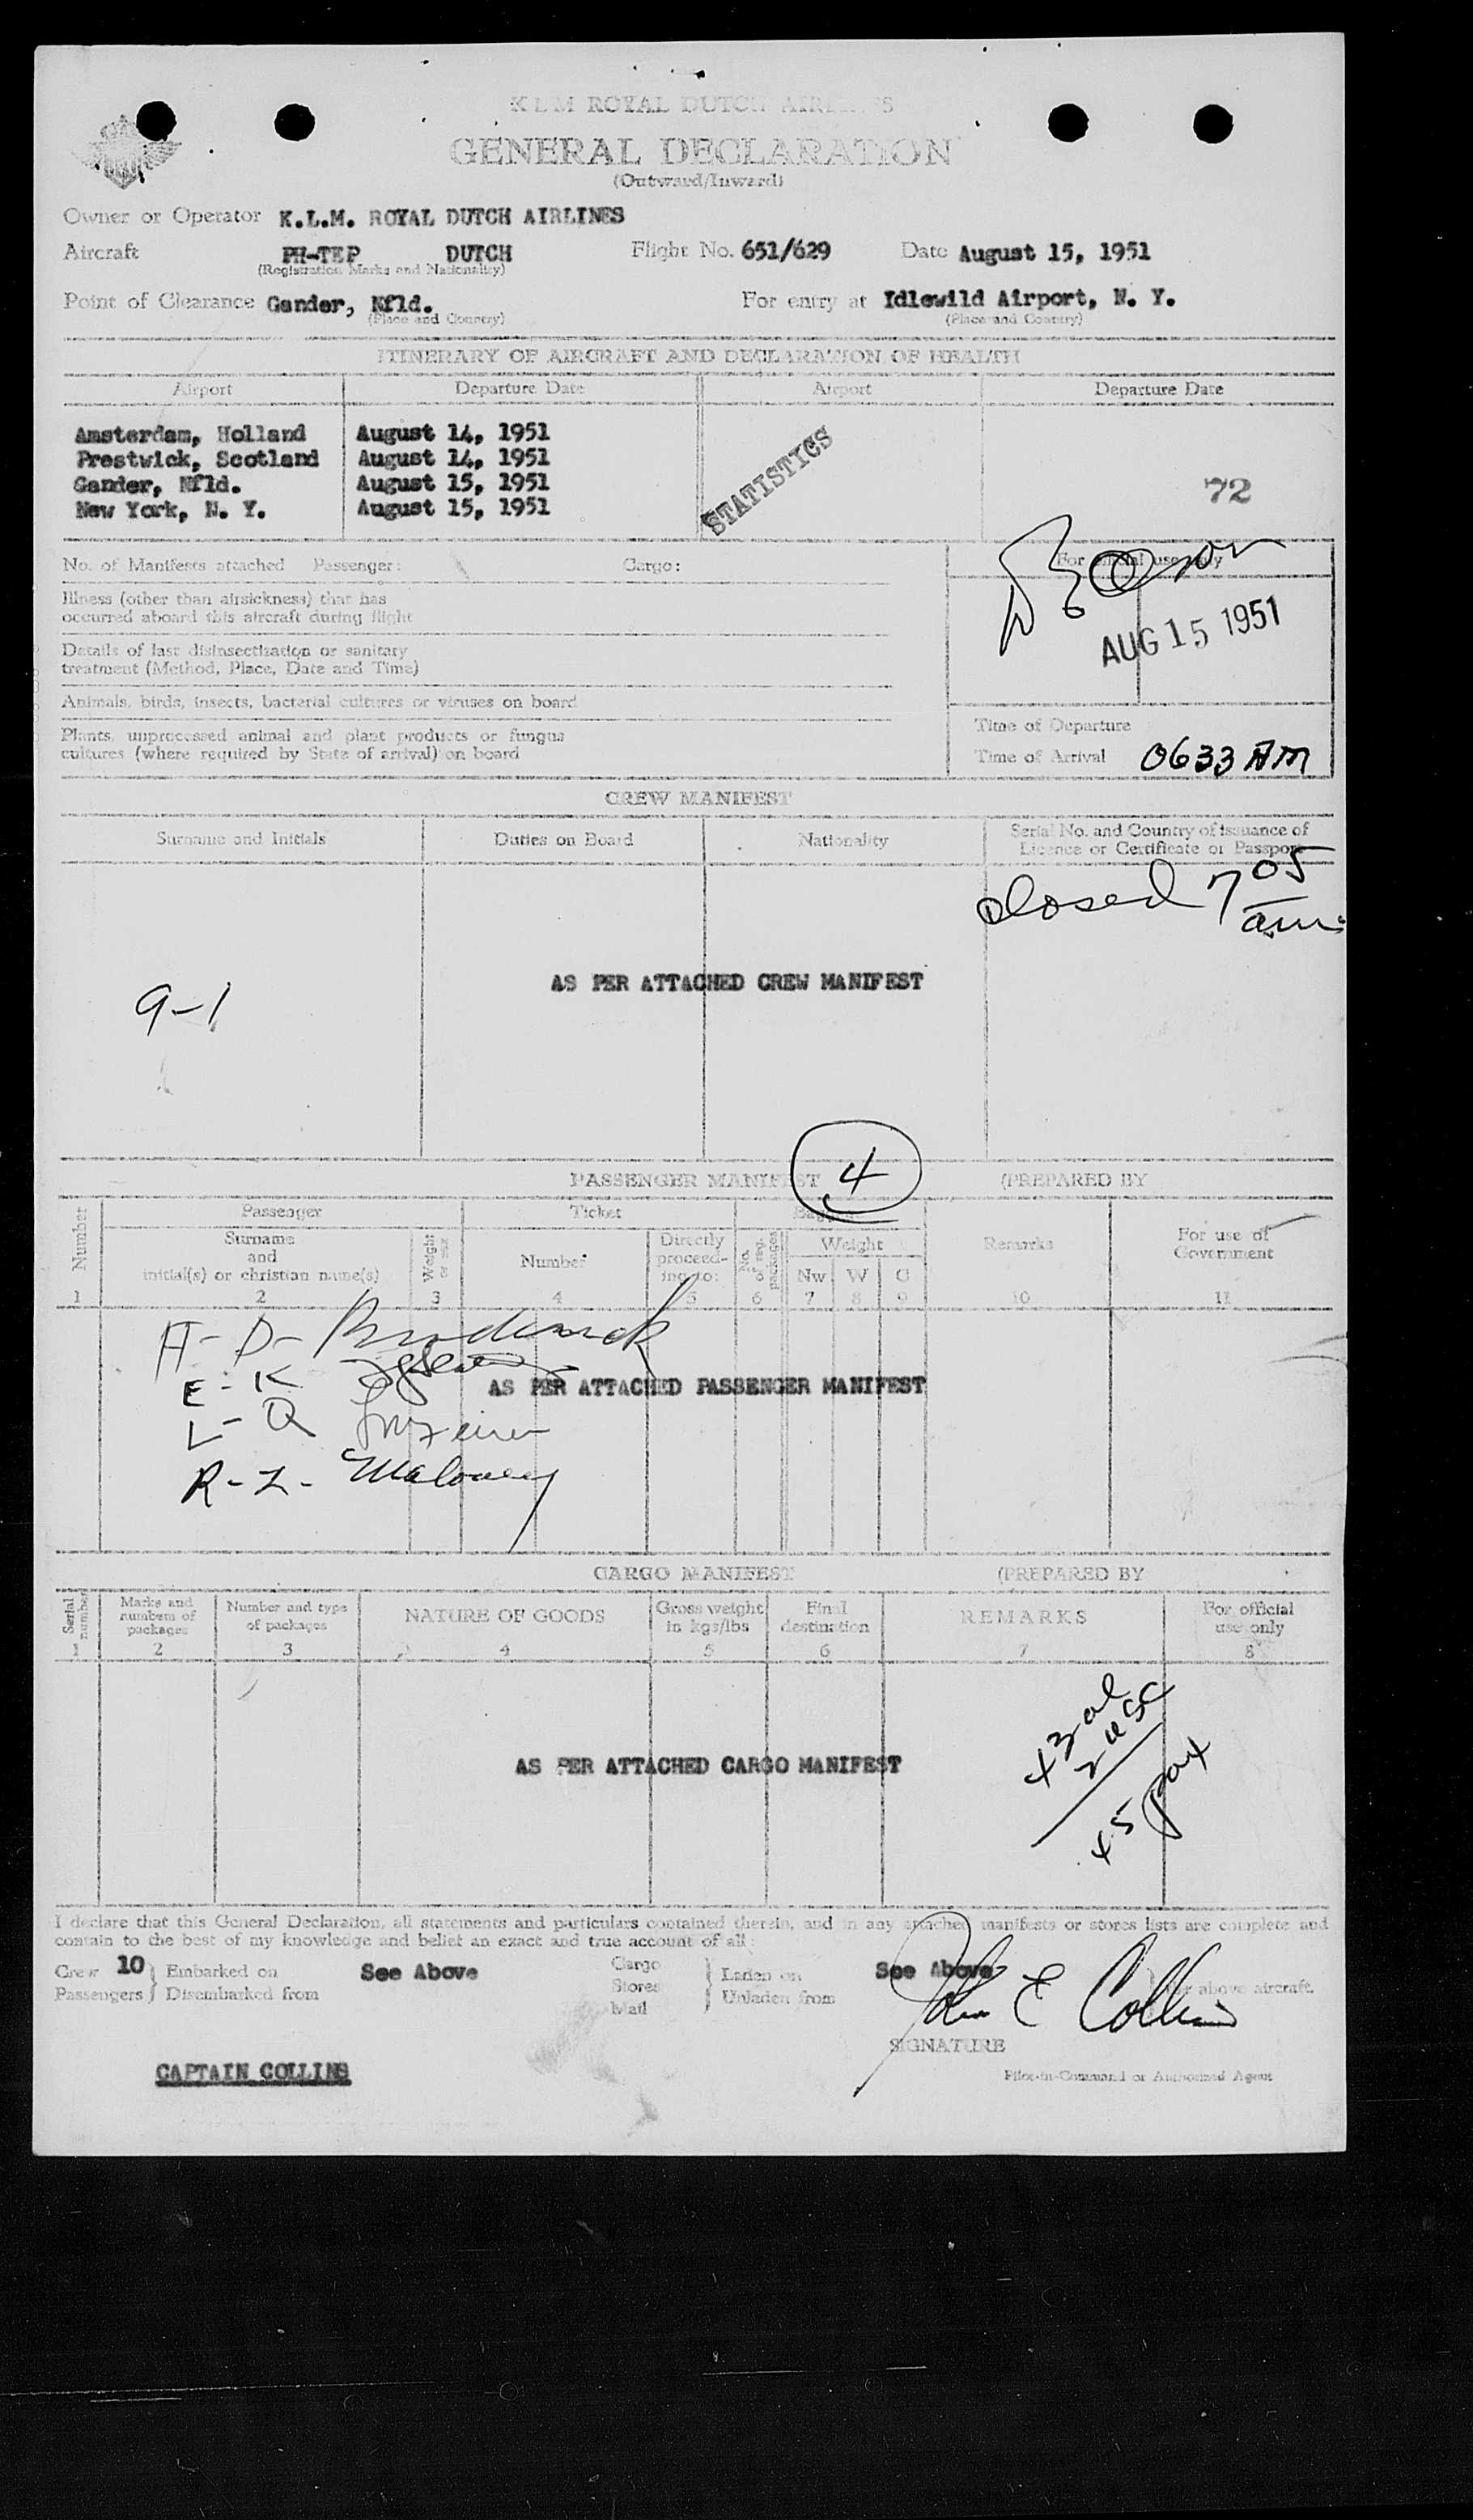 K L M ROYAL DUTCH AIRLINES
GENERAL DECLARATION
(Outward/Inward)
Owner or Operator K.L.M. ROYAL DUTCH AIRLINES
Aircraft PH-TEP DUTCH Flight No. 651/629 Date August 15, 1951
(Registration Marks and Nationality)
Point of Clearance Gander, Nfld. For entry at Idlewild Airport, N. Y.
(Place and Country) (Place and Country)
ITINERARY OF AIRCRAFT AND DECLARATION OF HEALTH
Airport Departure Date Airport Departure Date
Amsterdam, Holland August 14, 1951
Prestwick, Scotland August 14, 1951
Gander, Nfld. August 15, 1951
New York, N. Y. August 15, 1951
STATISTICS
72
No. of Manifests attached Passenger: Cargo: For official use only
Illness (other than airsickness) that has
occurred aboard this aircraft during flight
AUG 15 1951
Details of last disinsectization or sanitary
treatment (Method, Place, Date and Time)
Animals, birds, insects, bacterial cultures or viruses on board
Plants, unprocessed animal and plant products or fungus
cultures (where required by State of arrival) on board
Time of Departure
Time of Arrival 0633 AM
CREW MANIFEST
Surname and Initials Duties on Board Nationality Serial No. and Country of Issuance of
Licence or Certificate or Passport
closed 7 05 am
AS PER ATTACHED CREW MANIFEST
9-1
4
PASSENGER MANIFEST (PREPARED BY
Number Passenger Ticket Baggage
Surname
and
initial(s) or christian name(s)
Weight or sex
Number
Directly
proceed-
ing to:
No. of reg. packages
Weight
Nw W C
Remarks
For use of
Government
1 2 3 4 5 6 7 8 9 10 11
A-D-
E-K
AS PER ATTACHED PASSENGER MANIFEST
L-Q
R-Z- Maloney
CARGO MANIFEST (PREPARED BY
Serial number
Marks and
numbers of
packages
Number and type
of packages
NATURE OF GOODS
Gross weight
in kgs/lbs
Final
destination
REMARKS
For official
use only
1 2 3 4 5 6 7 8
43 al
2 USC
45 pax
AS PER ATTACHED CARGO MANIFEST
I declare that this General Declaration, all statements and particulars contained therein, and in any attached manifests or stores lists are complete and
contain to the best of my knowledge and belief an exact and true account of all:
Crew 10 Embarked on See Above Cargo Laden on See Above
Passengers Disembarked from Stores Unladen from above aircraft.
Mail
John E Collins
SIGNATURE
CAPTAIN COLLINS
Pilot-in-Command or Authorized Agent